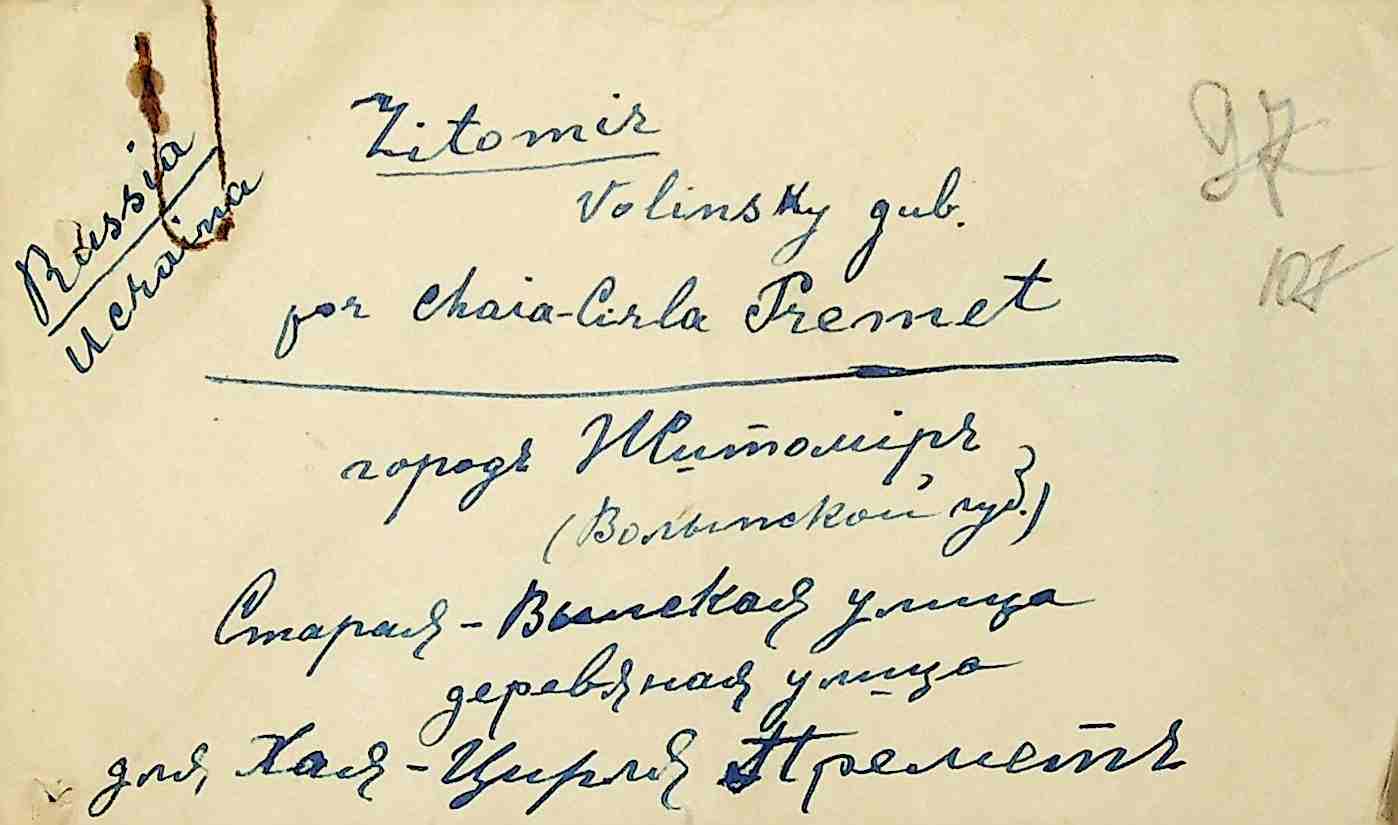 Russia
Ucraina
Zitomir
Volinsky gub.
for Chaia-Cirla Premet
городъ Житоміръ
(Волынской губ.)
Старая-Вильская улица
деревяная улица
для Хая-Цирля Преметъ
107